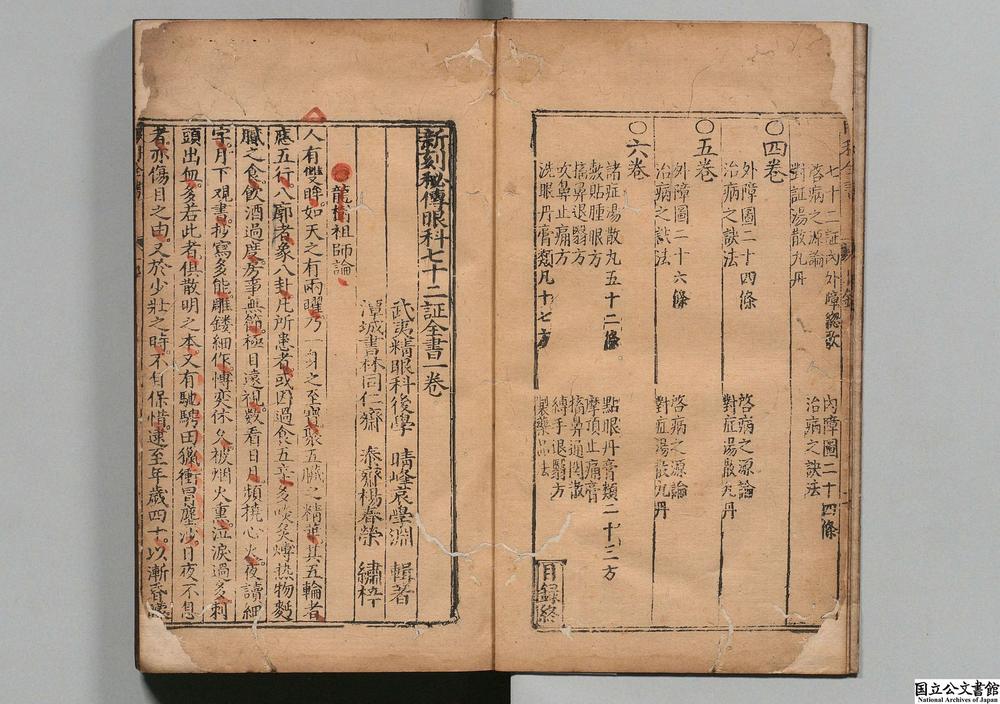 七十二証內外障總歌
內障圖二十四條
啓病之源論
治病之訣法
對証湯散丸丹
〇四卷
外障圖二十四條
啓病之源論
治病之訣法
對症湯散丸丹
〇五卷
外障圖二十六條
啓病之源論
治病之訣法
對症湯散丸丹
〇六卷
諸症湯散丸五十二條
點眼丹膏類二十三方
敷貼腫眼方
摩頂止痛膏
搐鼻退翳方
搐鼻通関散
吹鼻止痛方
縛手退翳方
洗眼丹膏類凡十七方
製藥品法
目録終
新刻秘傳眼科七十二証全書一卷
武夷精眼科後學 晴峰袁學淵 輯著
潭城書林同仁齋 泰齋楊春榮 繡梓
龍樹祖師論
人有雙眸如天之有兩曜乃一身之至寶聚五臟之精華其五輪者
應五行八廓者象八卦凡所患者或因過食五辛多啖炙煿热物麪
臟之食飲酒過度房事無節極目遠視数看日月頻撓心火夜讀細
字月下观書抄寫多能雕鏤細作博奕休久被烟火重泣淚過多刺
頭出血多若此者俱散明之本又有馳騁田獵衝冒塵沙日夜不息
者亦傷目之由又於少壯之時不自保惜逮至年歲四十以漸昏